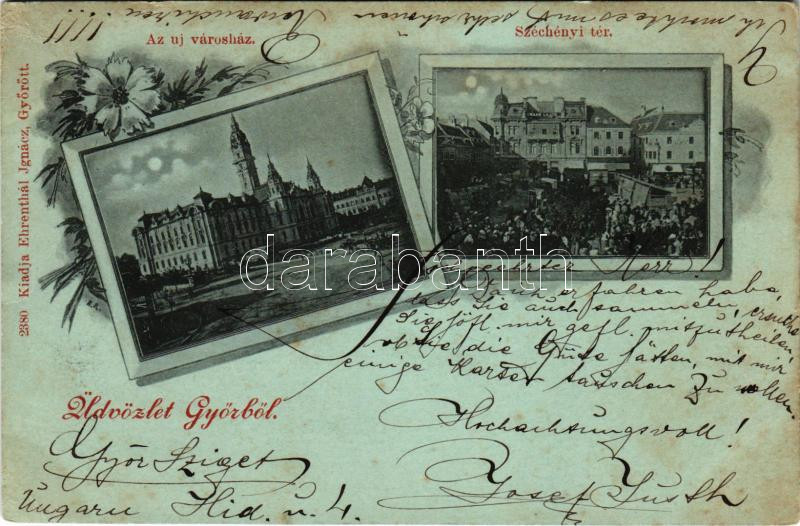 Az uj városház.
Széchényi tér.
2380 Kiadja Ehrenthál Jgnácz, Győrött.
darabanth
Üdvözlet Győrből.
Geehrter Herr!
erfahren habe,
dass Sie auch sammeln, ersuche
Sie höfl. mir gefl. mitzutheilen,
ob Sie die Güte hätten, mit mir
einige Karten tauschen zu wollen.
Hochachtungsvoll!
Josef Justh
Győr Sziget
Ungarn Hid. u. 4.